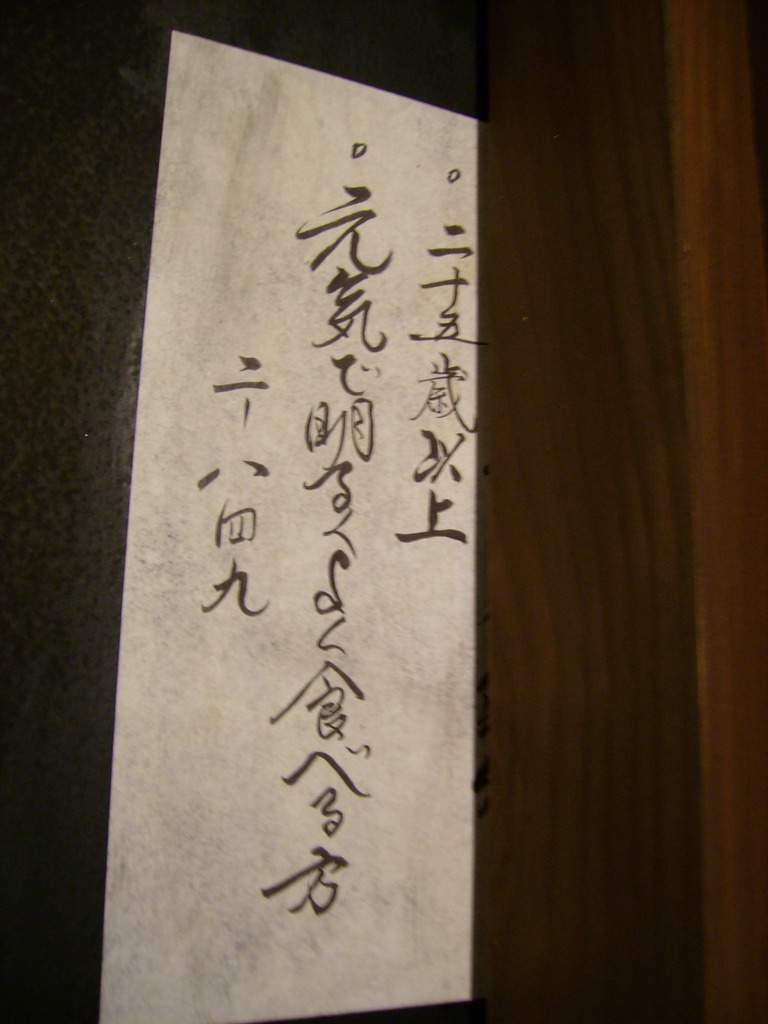 。二十五歳以上
。元気で明るくよく食べる方
二-八四九